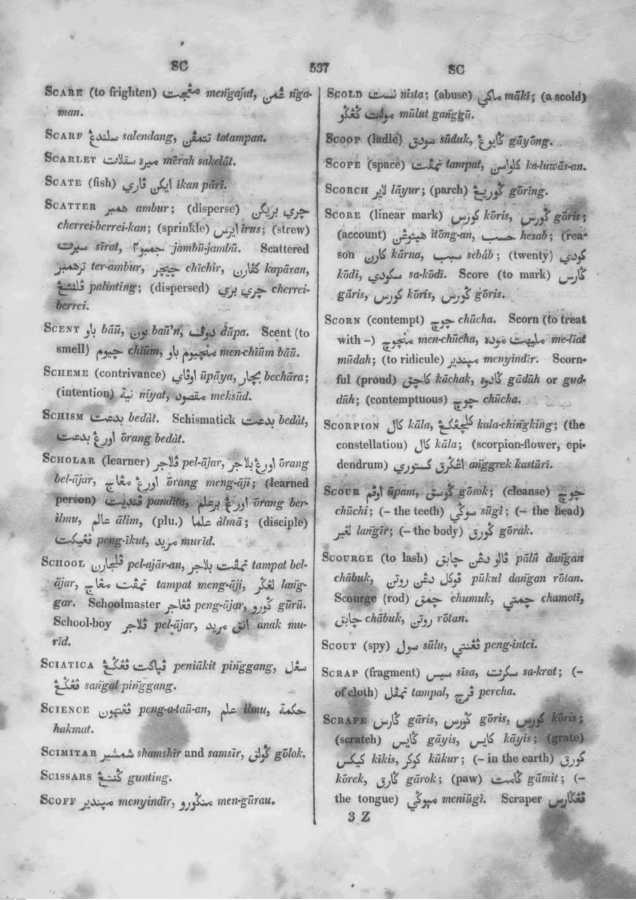 SC 537 SC
SCARE (to frighten) مڠجت meṅgajut, ڠمن ṅga-
man.
SCARF سلندڠ salendang, تتمڤن tatampan.
SCARLET ميره سقلات mērah sakelāt.
SCATE (fish) ايكن ڤاري ikan pāri.
SCATTER همبر ambur; (disperse) چري بريكن
cherrei-berrei-kan; (sprinkle) ايرس īrus; (strew)
سيرت sīrat, جمبو٢ jambū-jambū. Scattered
ترهمبر ter-ambur, چيچر chīchir, كڤارن kapāran,
ڤلنتڠ palinting; (dispersed) چري بري cherrei-
berrei.
SCENT باو bāū, بون baū'n, دوڤ dūpa. Scent (to
smell) چيوم chīūm, منچيوم باو men-chīūm bāū.
SCHEME (contrivance) اوڤاي ūpāya, بچار bechāra;
(intention) نية nīyat, مقصود meksūd.
SCHISM بدعت bedāt. Schismatick بدعت bedāt,
اورڠ بدعت ōrang bedāt.
SCHOLAR (learner) ڤلاجر pel-ājar, اورڠ بلاجر ōrang
bel-ājar, اورڠ مڠاجي ōrang meng-āji; (learned
person) ڤنديت pandīta, اورڠ برعلم ōrang ber-
ilmu, عالم ālim, (plu.) علما ālmā; (disciple)
ڤڠيكت peng-īkut, مريد murīd.
SCHOOL ڤلجارن pel-ajār-an, تمڤت بلاجر tampat bel-
ājar, تمڤت مڠاجي tampat meng-āji, لڠگر lang-
gar. Schoolmaster ڤڠاجر peng-ājar, گورو gūrū.
School-boy ڤلاجر pel-ājar, انق مريد anak mu-
rīd.
SCIATICA ڤياكت ڤڠگڠ peniākit pinggang, سڠل
ڤڠگڠ sangal pinggang.
SCIENCE ڤڠتهون peng-a-taū-an, علم ilmu, حكمة
hakmat.
SCIMITAR شمشير shamshīr and samsīr, گولق gōlok.
SCISSARS گنتڠ gunting.
SCOFF ميندير menyindīr, منگورو men-gūrau.
SCOLD نست nista; (abuse) ماكي māki; (a scold)
مولت گڠگو mūlut ganggū.
SCOOP (ladle) سودق sūduk, گايوڠ gāyōng.
SCOPE (space) تمڤت tampat, كلواسن ka-luwās-an.
SCORCH لاير lāyur; (parch) گوريڠ gōring.
SCORE (linear mark) كورس kōris, گورس gōris;
(account) هيتوڠن itōng-an, حساب hesab; (rea-
son كارن kārna, سبب sebāb; (twenty) كودي
kōdi, سكودي sa-kōdi. Score (to mark) گارس
gāris, كورس kōris, گورس gōris.
SCORN (contempt) چوچ chūcha. Scorn (to treat
with –) منچوچ men-chūcha, مليهت موده me-līat
mūdah; (to ridicule) ميندير menyindīr. Scorn-
ful (proud) كاچق kāchak, گادوه gādūh or gud-
dūh; (contemptuous) چوچ chūcha.
SCORPION كال kāla, كلچڠكڠ kala-chingking; (the
constellation) كال kāla; (scorpion-flower, epi-
dendrum) اڠگرق كستوري anggrek kastūri.
SCOUR اوڤم ūpam, گوسق gōsok; (cleanse) چوچي
chūchi; (– the teeth) سوگي sūgi; (– the head)
لڠير langīr; (– the body) گورق gōrak.
SCOURGE (to lash) ڤالو دڠن چابق pālū daṅgan
chābuk, ڤوكل دڠن روتن pūkul daṅgan rōtan.
Scourge (rod) چمق chumuk, چمتي chamoti,
چابق chābuk, روتن rōtan.
SCOUT (spy) سولو sūlu, ڤڠنتي peng-intei.
SCRAP (fragment) سيس sīsa, سكرت sa-krat; (–
of cloth) تمڤل tampal, ڤرچ percha.
SCRAPE گارس gāris, گورس gōris, كورس kōris;
(scratch) گايس gāyis, كايس kāyis; (grate)
كيكس kīkis, كوكر kūkur; (– in the earth) كورق
kōrek, گارق gārok; (paw) گامت gāmit; (–
the tongue) ميوگي meniūgi. Scraper ڤڠگارس
3 Z